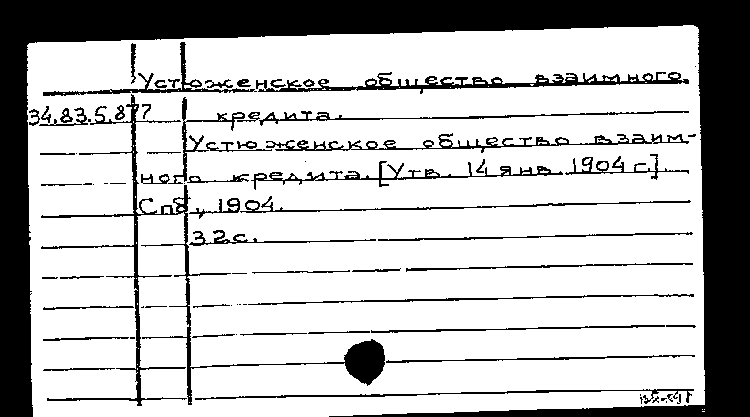 Устюженское общество взаимного
34.83.5.877 кредита.
Устюженское общество взаим-
ного кредита. [Утв. 14 янв. 1904 г.].
Спб, 1904.
32с.